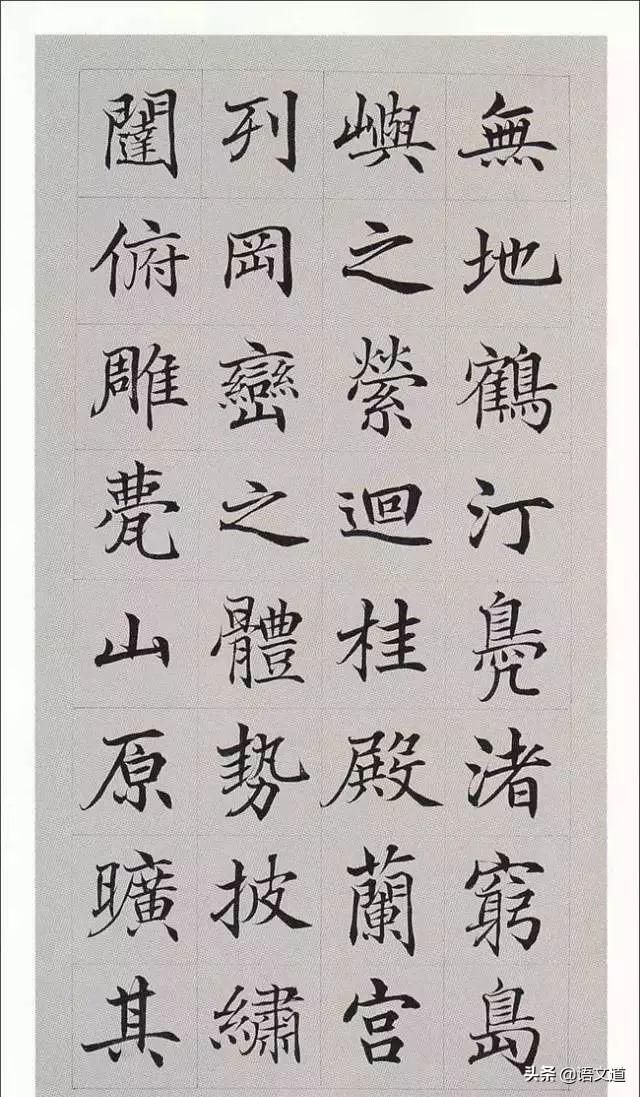 無地鶴汀鳧渚窮島
嶼之縈迴桂殿蘭宮
列岡巒之體勢披繡
闥俯雕甍山原曠其
头条 @语文道